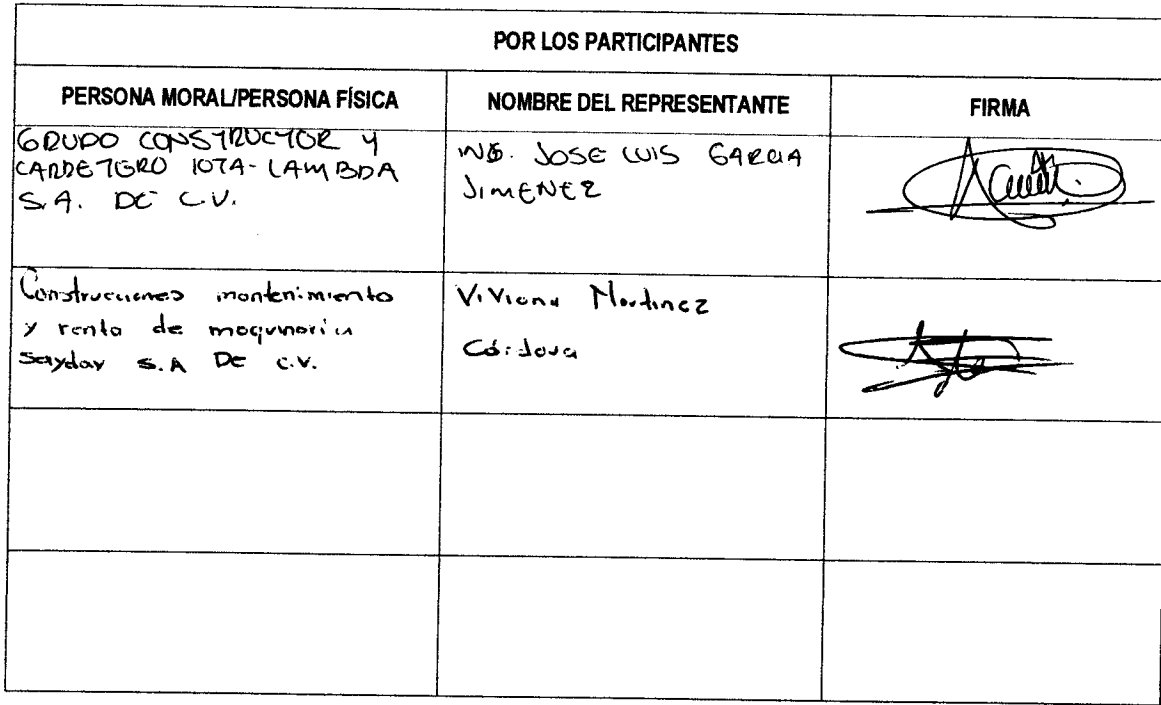 POR LOS PARTICIPANTES
PERSONA MORAL/PERSONA FÍSICA NOMBRE DEL REPRESENTANTE FIRMA
GRUPO CONSTRUCTOR Y
CARRETERO IOTA-LAMBDA
S.A. DE C.V.
ING. JOSE LUIS GARCIA
JIMENEZ
Construcciones mantenimiento
y renta de maquinaria
Saydav S.A DE C.V.
Viviana Martinez
Córdova